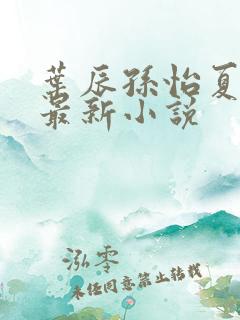 葉辰孫怡夏
最新小說
泓零
未经同意禁止转载